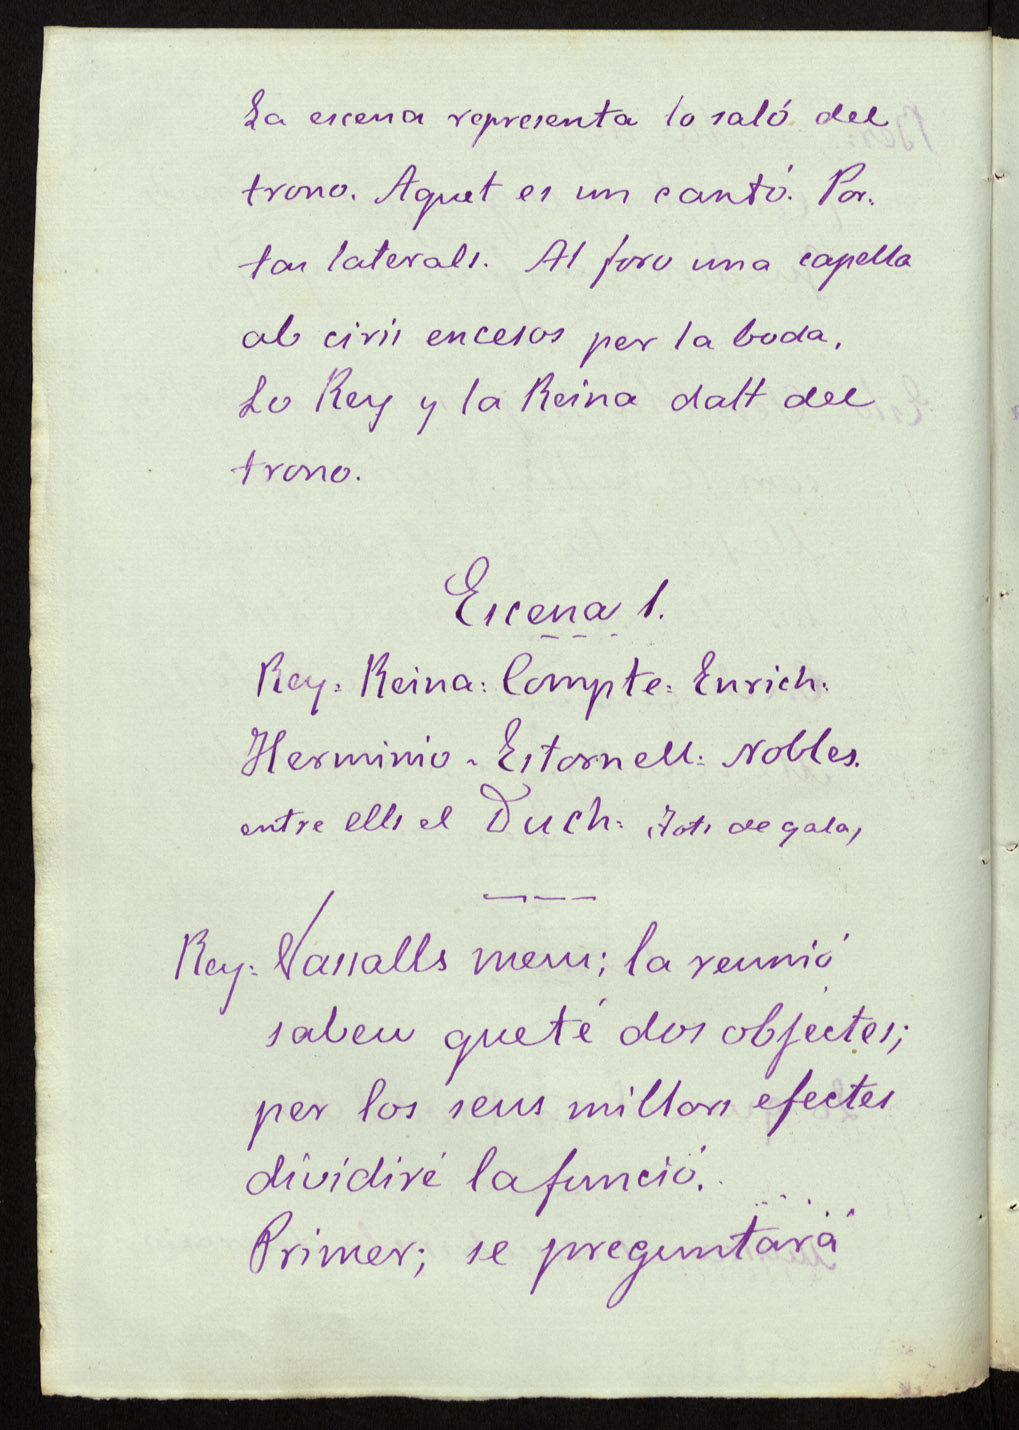 La escena representa lo saló del
trono. Aquet es un cantó. Por-
tas laterals. Al foro una capella
ab ciris encesos per la boda.
Lo Rey y la Reina dalt del
trono.
Escena 1.
Rey: Reina: Compte: Enrich:
Herminio - Estornell: Nobles.
entre ells el Duch: (Tots de gala)
Rey: Vassalls meus; la reunió
sabeu que té dos objectes;
per los seus millors efectes
dividiré la funció.
Primer; se preguntará